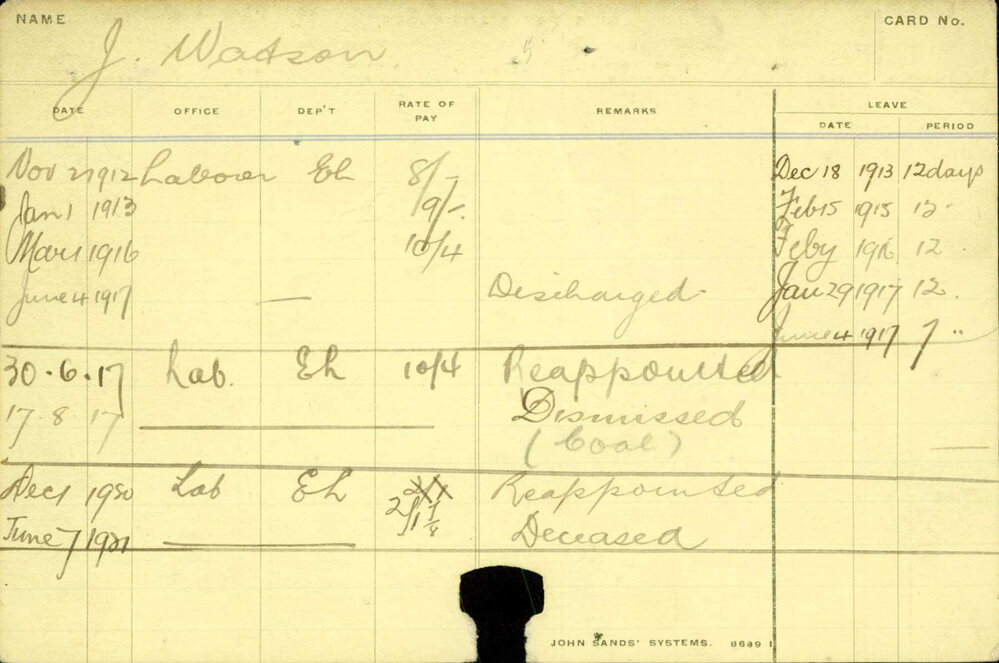 NAME
CARD No.
J. Watson
DATE OFFICE DEP'T RATE OF PAY REMARKS LEAVE
DATE PERIOD
Nov 21 1912 Laborer Eh 8/- Dec 18 1913 12 days
Jan 1 1913 9/- Feb 15 1915 12 "
Mar 1 1916 10/4 Feby 1916 12 "
June 4 1917 — Discharged Jan 29 1917 12 "
June 4 1917 7 "
30.6.17 Lab. Eh 10/4 Reappointed
17.8.17 — Dismissed
(Coal)
Dec 1 1920 Lab Eh Reappointed
June 7 1921 — 2/1 7/8 Deceased
JOHN SANDS' SYSTEMS. 8689 1